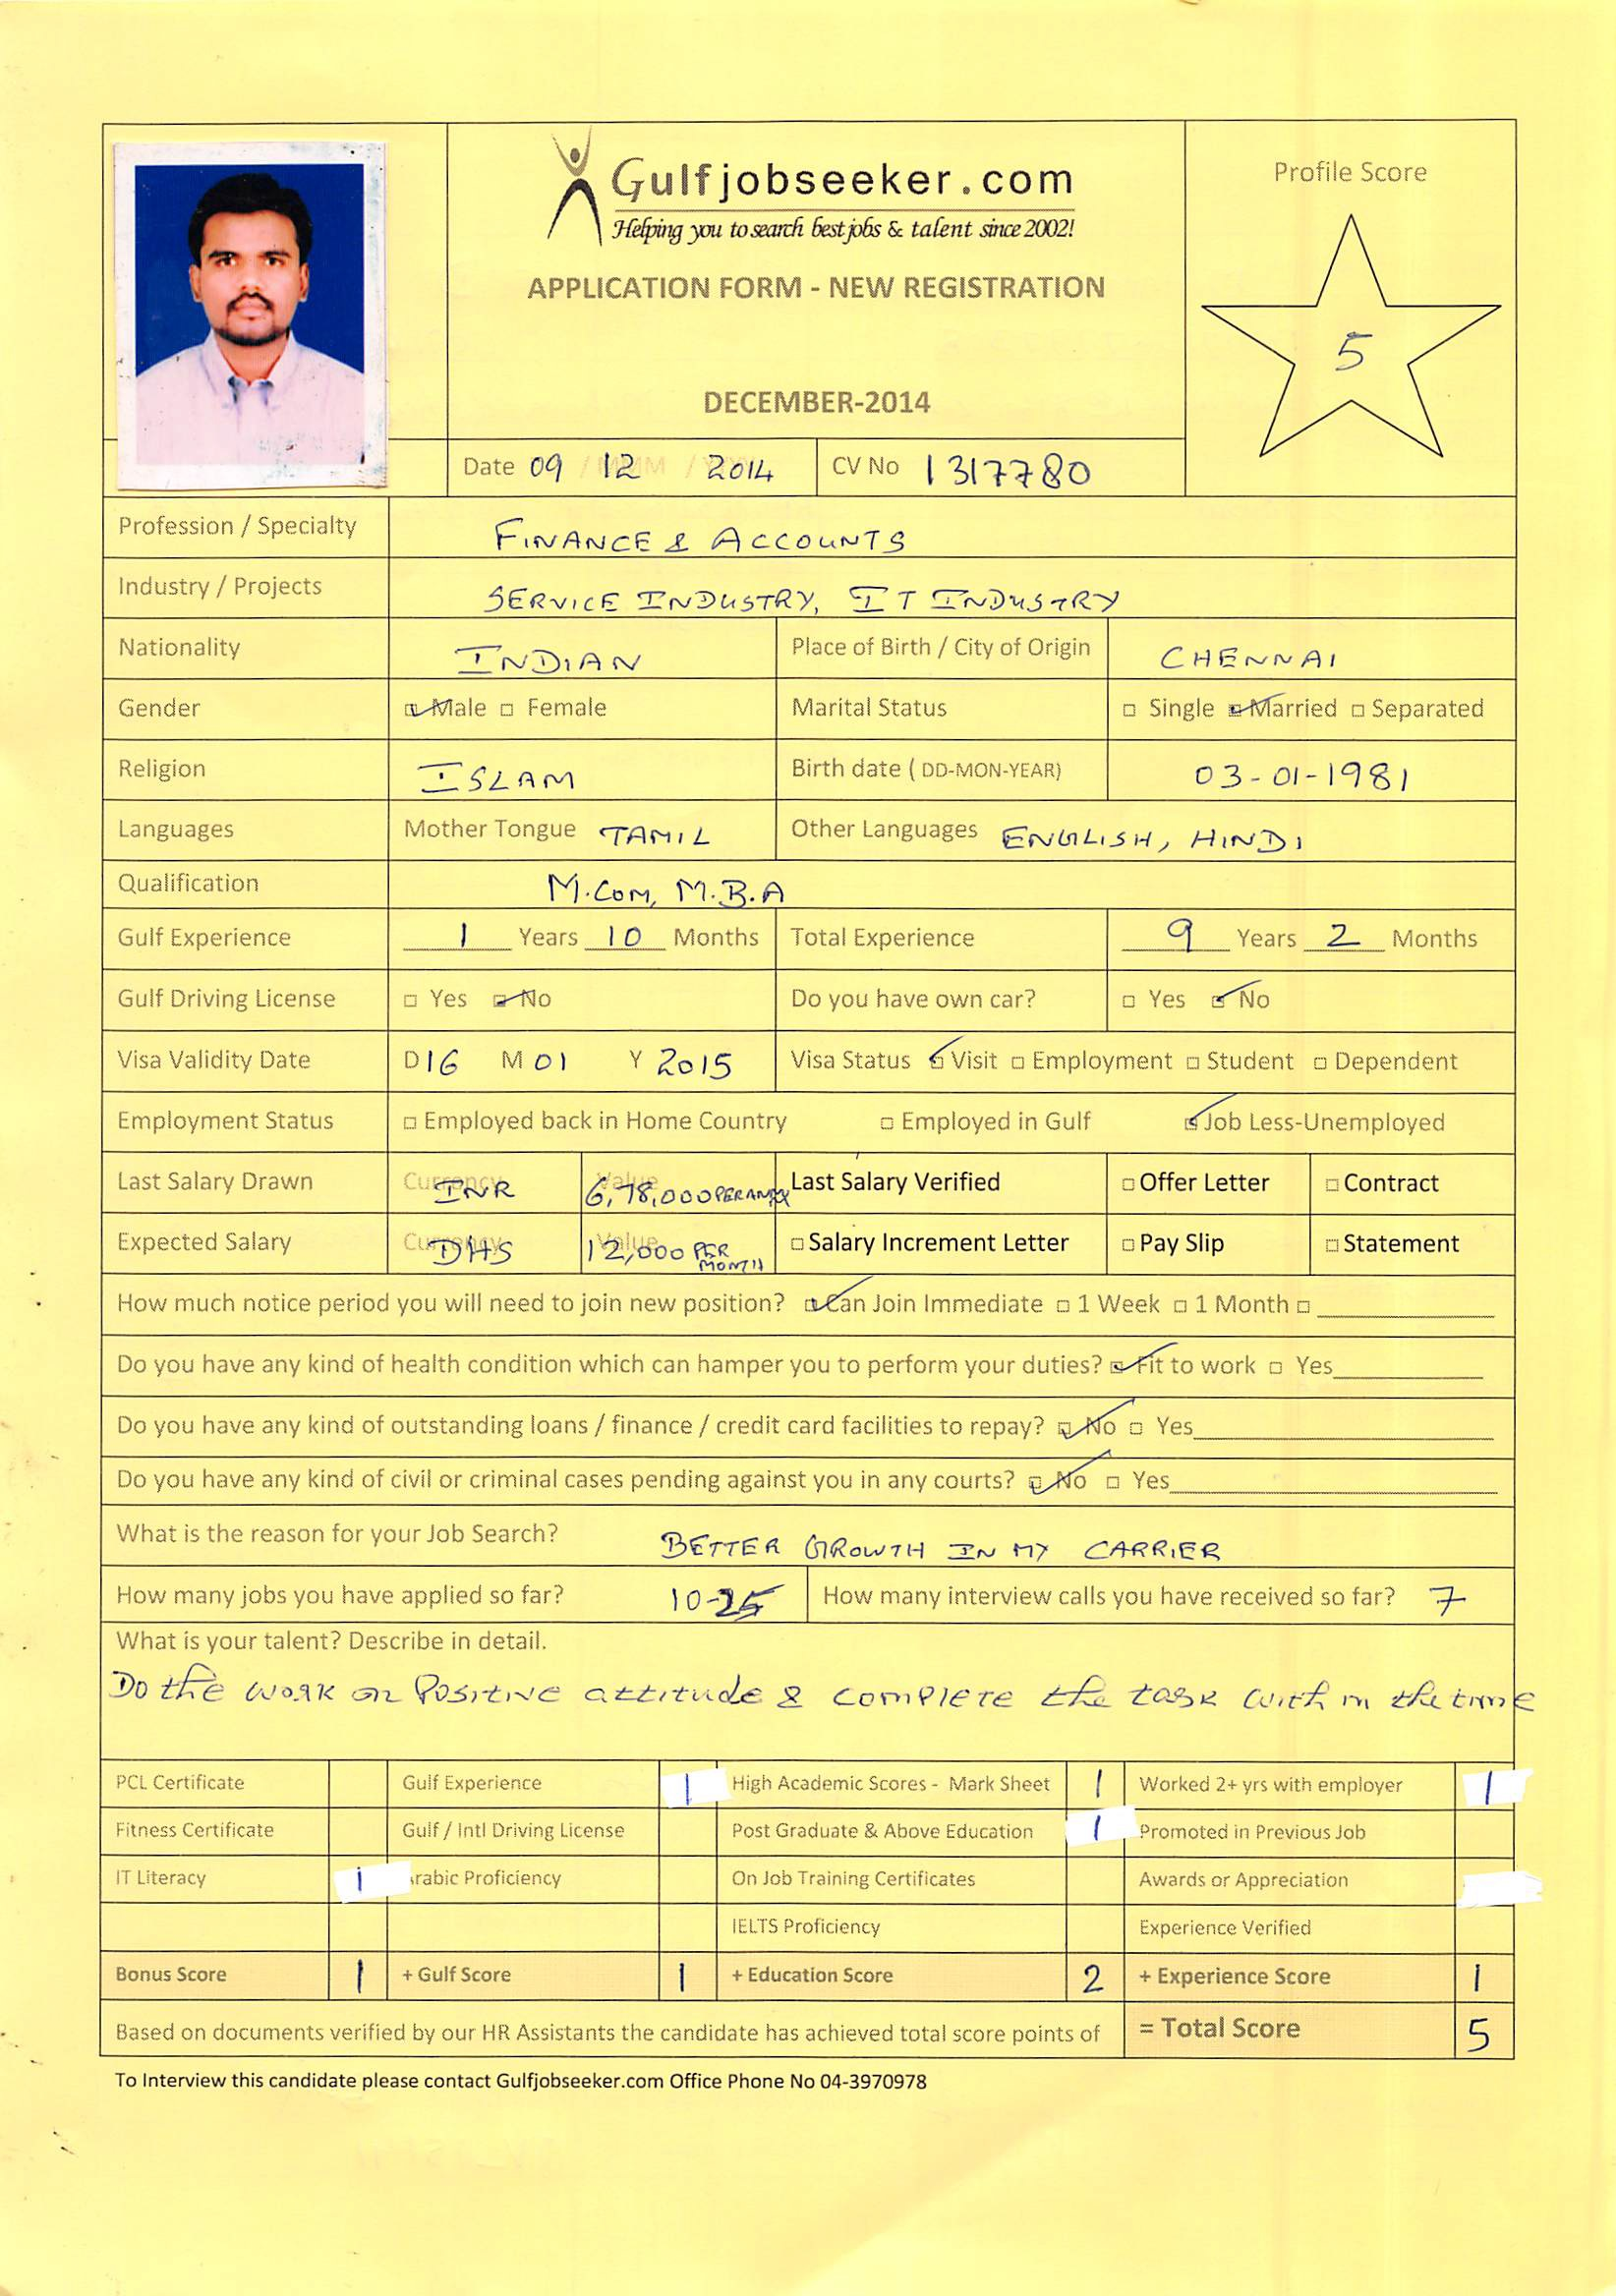 Gulfjobseeker.com
Helping you to search best jobs & talent since 2002!
APPLICATION FORM - NEW REGISTRATION
DECEMBER-2014
Profile Score
5
Date 09 / 12 / 2014 CV No 1317780
Profession / Specialty FINANCE & ACCOUNTS
Industry / Projects SERVICE INDUSTRY, IT INDUSTRY
Nationality INDIAN Place of Birth / City of Origin CHENNAI
Gender Male Female Marital Status Single Married Separated
Religion ISLAM Birth date ( DD-MON-YEAR) 03-01-1981
Languages Mother Tongue TAMIL Other Languages ENGLISH, HINDI
Qualification M.COM, M.B.A
Gulf Experience 1 Years 10 Months Total Experience 9 Years 2 Months
Gulf Driving License Yes No Do you have own car? Yes No
Visa Validity Date D 16 M 01 Y 2015 Visa Status Visit Employment Student Dependent
Employment Status Employed back in Home Country Employed in Gulf Job Less-Unemployed
Last Salary Drawn Currency INR Value 6,78,000 Last Salary Verified Offer Letter Contract
Expected Salary Currency DHS Value 12,000 PER MONTH Salary Increment Letter Pay Slip Statement
How much notice period you will need to join new position? Can Join Immediate 1 Week 1 Month
Do you have any kind of health condition which can hamper you to perform your duties? Fit to work Yes
Do you have any kind of outstanding loans / finance / credit card facilities to repay? No Yes
Do you have any kind of civil or criminal cases pending against you in any courts? No Yes
What is the reason for your Job Search? BETTER GROWTH IN MY CARRIER
How many jobs you have applied so far? 10-25 How many interview calls you have received so far? 7
What is your talent? Describe in detail.
Do the work on Positive attitude & complete the task with in the time
PCL Certificate Gulf Experience 1 High Academic Scores - Mark Sheet 1 Worked 2+ yrs with employer 1
Fitness Certificate Gulf / Intl Driving License Post Graduate & Above Education 1 Promoted in Previous Job
IT Literacy 1 rabic Proficiency On Job Training Certificates Awards or Appreciation
IELTS Proficiency Experience Verified
Bonus Score 1 + Gulf Score 1 + Education Score 2 + Experience Score 1
Based on documents verified by our HR Assistants the candidate has achieved total score points of = Total Score 5
To Interview this candidate please contact Gulfjobseeker.com Office Phone No 04-3970978